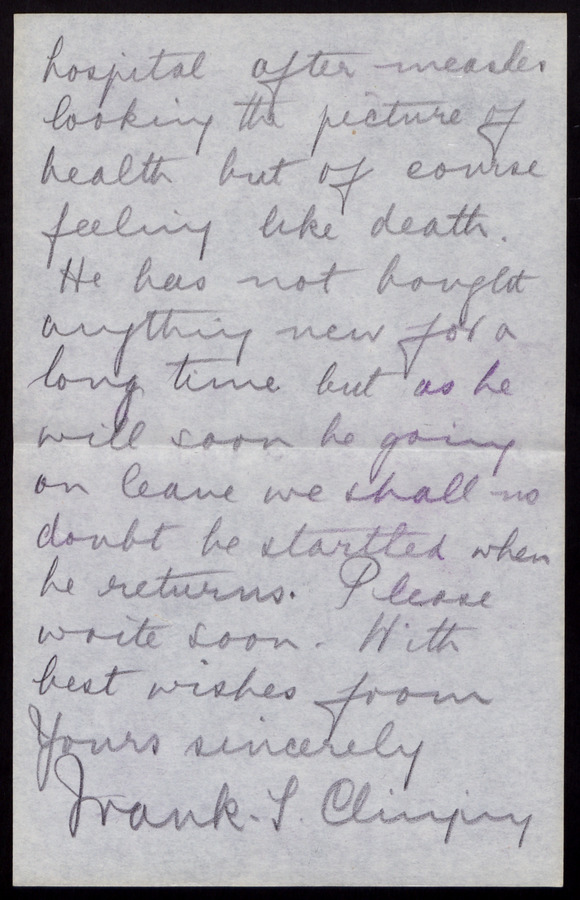 hospital after measles
looking the picture of
health but of course
feeling like death.
He has not bought
anything new for a
long time but as he
will soon be going
on leave we shall no
doubt be startled when
he returns. Please
write soon. With
best wishes from
Yours sincerely
Frank. S.